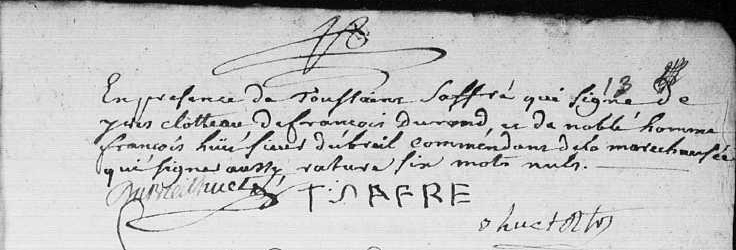 13
En presence de Toussaint Saffré qui signe de
yves clotteau de francois durand, et de noble homme
francois hué sieur dubreil commendant de la marechaussée
qui signe aussy rature six mots nuls.
TSAFRE